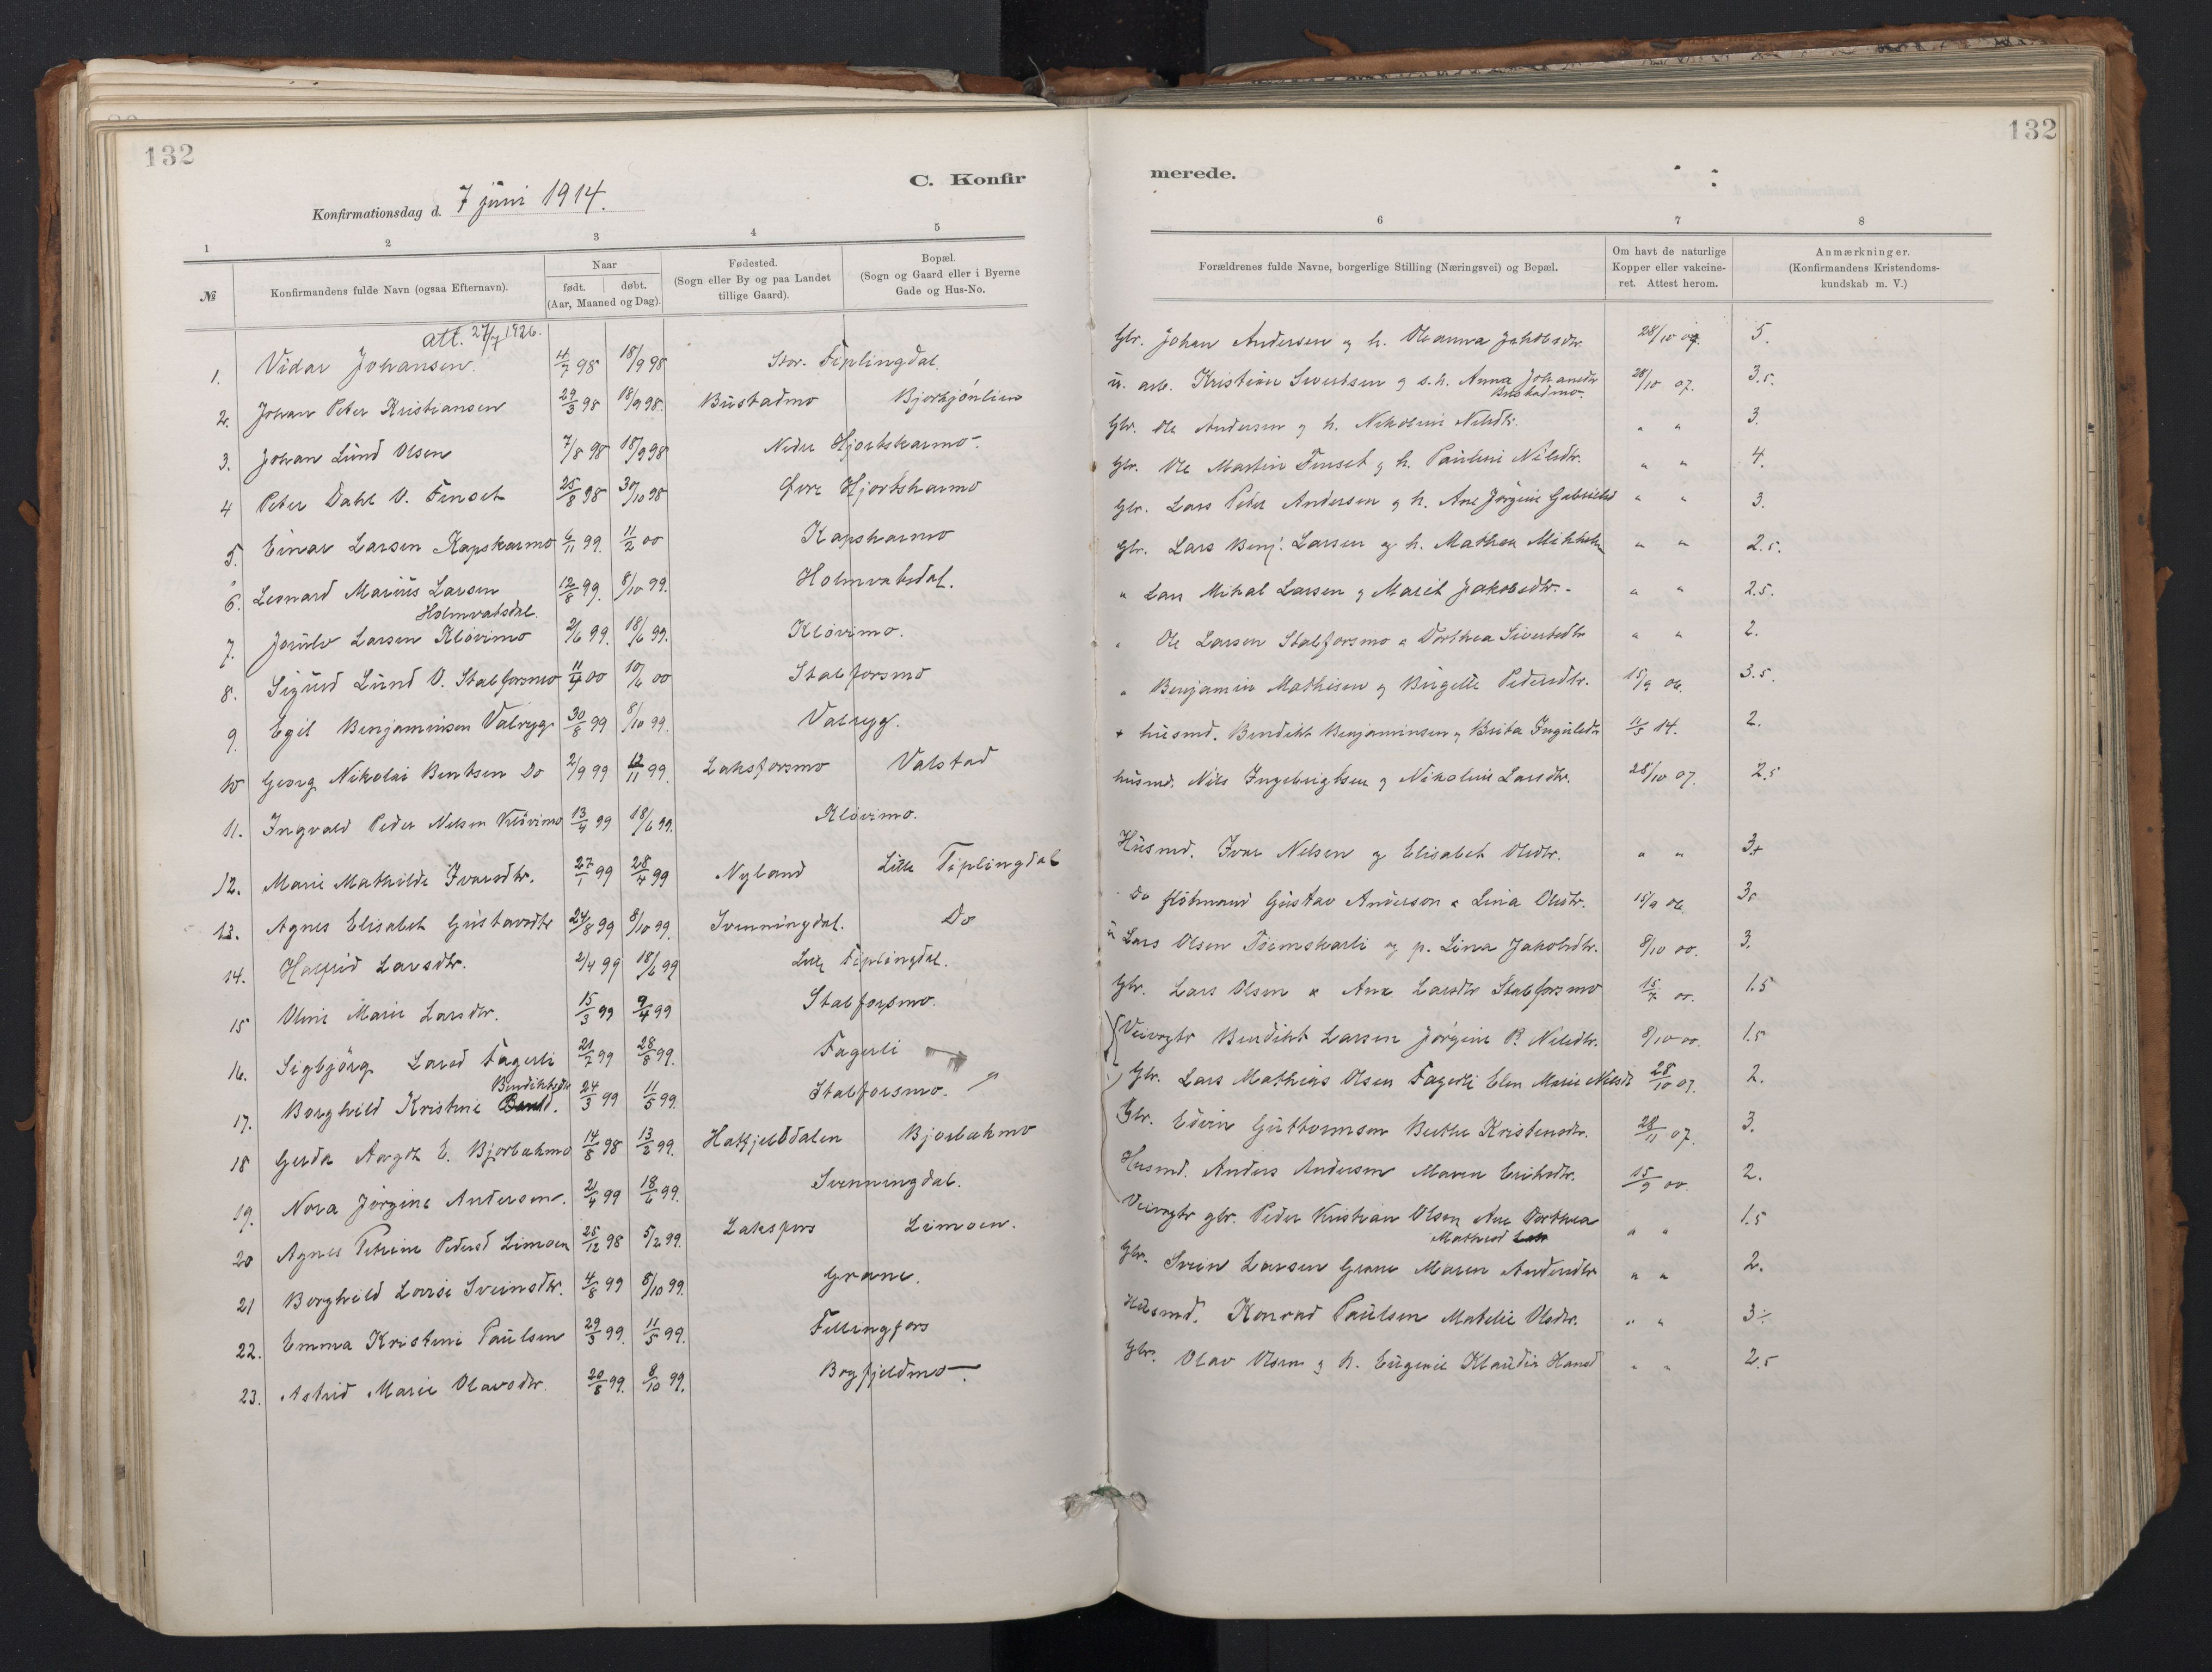 132
C. Konfir
Konfirmationsdag d. 7 juni 1914.
1 2 3 4 5
№ Konfirmandens fulde Navn (ogsaa Efternavn). Naar født. døbt. (Aar, Maaned og Dag). Fødested. (Sogn eller By og paa Landet tillige Gaard). Bopæl. (Sogn og Gaard eller i Byerne Gade og Hus-No.
att. 27/7 1926.
1. Vidar Johansen. 4/7 98 18/9 98 Stor-Fiplingdal
2. Johan Peter Kristiansen 29/3 98 18/9 98. Bustadmo
3. Johan Lund Olsen 7/8 98 18/9 98 Nedre Hjortskarmo
4 Peter Dahl O. Finset 25/8 98 30/10 98 Øvre Hjortskarmo
5. Einar Larsen Kapskarmo 6/11 99. 11/2 00 Kapskarmo
6. Leonard Marius Larsen 12/8 99. 8/10 99. Holmvatsdal.
Holmvatsdal.
7. Jorulv Larsen Klövimo 2/6 99. 18/6 99. Klövimo.
8. Sigurd Lund O. Stalforsmo 11/4 00 10/6 00 Stalforsmo
9. Egil Benjaminsen Valrygg 30/8 99 8/10 99. Valrygg.
10 Georg Nikolai Bentsen Do 2/9 99 12/11 99. Laksforsmo Valstad
11. Ingvald Peder Nelsen Klövimo 13/4 99 18/6 99. Klövimo.
12. Marie Mathilde Ivarsdtr. 27/1 99 28/4 99 Nyland Lille Fiplingdal
13. Agnes Elisabet Gustavsdtr 24/8 99 8/10 99. Svenningdal. Do
14. Halfrid Larsdtr. 2/4 99 18/6 99 Lille Fiplingdal.
15 Oline Marie Larsdtr. 15/3 99 9/4 99 Stalforsmo.
16. Sigbjörg Larsd Fagerli 21/7 99 28/8 99. Fagerli
Bendiktsdtr
17. Borghild Kristine 24/3 99 11/5 99. Stalforsmo.
18 Gerda E. Bjorbækmo 14/8 98 13/2 99. Hatfjelddalen Bjorbækmo
19. Nora Jörgine Andersen. 2/4 99 18/6 99. Svenningdal.
20 Agnes Petrine Pedersd Limoen 25/12 98 5/2 99. Laksfors Limoen.
21 Borghild Lovise Sveinsdtr. 4/8 99 8/10 99. Grane.
22. Emma Kristine Paulsen 29/3 99. 11/5 99. Fellingfors
23. Astrid Marie Olavsdtr. 20/8 99. 8/10 99. Bogfjeldmo
132
merede.
6 7 8
Forældrenes fulde Navne, borgerlige Stilling (Næringsvei) og Bopæl. Om havt de naturlige Kopper eller vakcineret. Attest herom. Anmærkninger. (Konfirmandens Kristendomskundskab m. V.)
Gbr. Johan Andersen og h. Oleanna Jakobsdtr. 28/10 07. 5.
u. arb. Kristian Sivertsen og s.h. Anna Johansdtr 28/10 07. 3.5.
Bustadmo.
Gbr. Ole Andersen og h. Nikoline Nilsdtr. " " 3.
Gbr. Ole Martin Finset og h. Pauline Nilsdtr. " " 4.
Gbr. Lars Peder Andersen og h. Ane Jörgine Gabrielsd " " 3.
Gbr. Lars Benj. Larsen og h. Mathea " " 2.5.
" Lars Mikal Larsen og Marit Jakobsdtr. " " 2.5.
" Ole Larsen Stalforsmo & Dorthea Sivertsdtr " " 2.
" Benjamin Mathisen og Birgitte Pedersdtr. 15/9 06. 3.5.
husmd. Bendikt Benjaminsen og Brita 11/5 14. 2.
husmd. Nils Ingebrigtsen og Nikoline Larsdtr. 28/10 07. 2.5
Husmd. Ivar Nelsen og Elisabet Olsdtr. " " 3+
Do Gustav Anderson & Lina Olsdtr. 15/9 06. 3.
Lars Olsen og p. Lina Jakobsdtr. 8/10 00. 3.
Gbr. Lars Olsen & Ane Larsdtr Stalforsmo 15/7 00. 1.5
Veivogtr Bendikt Larsen Jörgine P. Nilsdtr. 8/10 00. 1.5
Gbr. Lars Mathias Olsen Fagerli Elen Marie Nilsd 28/10 07. 2.
Gbr. Edvin Guttormsen Berthe Kristensdtr. 28/11 07. 3.
Husmd. Anders Andersen Maren Eriksdtr. 15/9 00. 2.
Veivogtr gbr. Peder Kristian Olsen Ane Dorthea " " 1.5
Mathisd
Gbr. Svein Larsen Grane Maren Andersdtr " " 2.
Husmd. Konrad Paulsen Matelie Olsdtr. " " 3÷
Gbr. Olav Olsen og h. Eugenie Klaudia Hansd " " 2.5